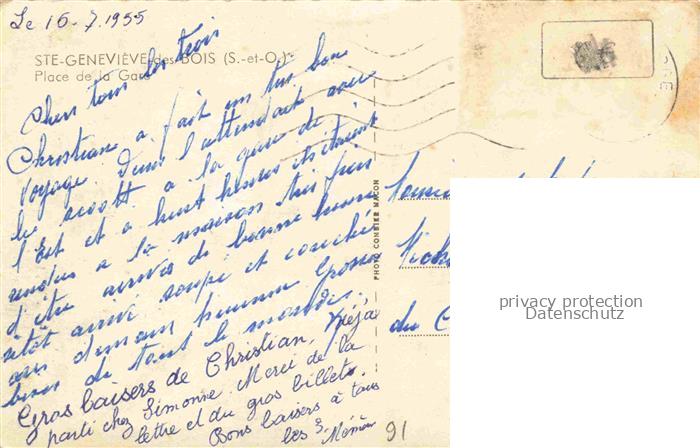 Le 16-7.1955
STE-GENEVIÈVE-des-BOIS (S.-et-O.)
Place de la Gare
Chers tous les trois
Christian a fait un très bon
voyage Dins l'attendait avec
le scoott a la gare de
l'Est et a huit heures ils étaient
rendus a la maison très fier
d'être arrivés de bonne heure
sitôt arrivé soupé et couché
au demain heureux Grosses
bises de tout le monde.
Gros baisers de Christian, déjà
parti chez Simonne Merci de la
lettre et du gros billet.
Bons baisers à tous
les 3. Mémère
PHOTO COMBIER MACON
du C
91
privacy protection
Datenschutz